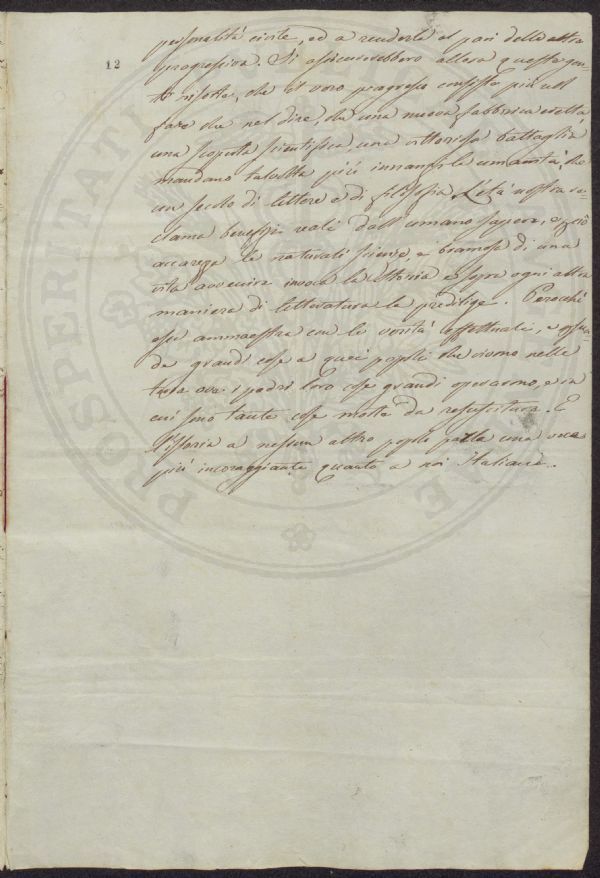 personalità civile, ed a renderla al pari delle altre
12
progressiva. Si assicurerebbero allora queste gen-
ti risorte, che il vero progresso consiste più nel
fare che nel dire, che una nuova fabbrica eretta,
una scoperta scientifica, una vittoriosa battaglia
mandano talvolta più innanzi la umanità, che
un secolo di lettere e di filosofia. L'età nostra re-
clama benefizi reali dall'umano sapere, e perciò
accarezza le naturali scienze, e bramosa di una
vita avvenire invoca la Storia e sopra ogni altra
maniera di letteratura la predilige. Perocchè
essa ammaestra con le verità effettuali, e
de grandi cose a quei popoli che vivono nelle
terra ove i padri loro cose grandi operarono, e in
cui sono tante cose morte da resuscitare. E
l'istoria a nessun altro popolo parla una voce
più incoraggiante quanto a noi italiani.
PROSPERITATI PUBLICAE